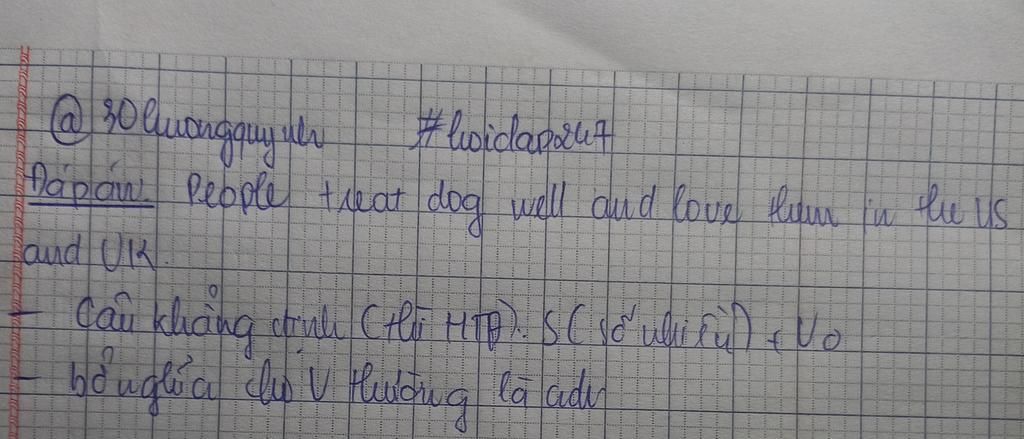 @ 30luongquyuh #hoidap247
Đáp án: People treat dog well and love them in the US
and UK.
- Câu khẳng định (thì HTĐ): S (số nhiều) + V0
- bổ nghĩa cho V thường là adv